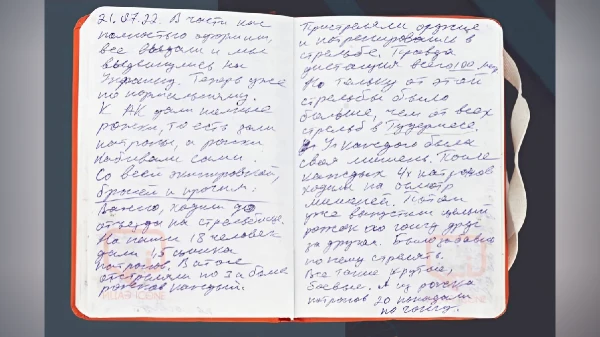 21.07.22. В части нас
полностью одели,
все выдали и мы
выдвинулись на
Украину. Теперь уже
по нормальному.
К АК дали целые
рожки, то есть дали
патроны, а рожки
набивали сами.
Со всей экипировкой,
броней и прочим.
Важно, ходили до
отъезда на стрельбище.
На наши 18 человек
дали 15 цинка
патронов. В итоге
отстреляли по 3 а более
рожков каждый.
Пристреляли оружие
и потренировались в
стрельбе. Правда
дистанция всего 100 м.
Но только от этой
стрельбы было
больше, чем от всех
стрельб в Гудермесе.
У каждого была
своя мишень. После
каждых 4х патронов
ходили на осмотр
мишеней. Потом
уже выпустили целый
рожок по
за другом. Было забавно
по нему стрелять.
Все такие крутые,
боевые. А из рожка
патронов 20 попадали
по